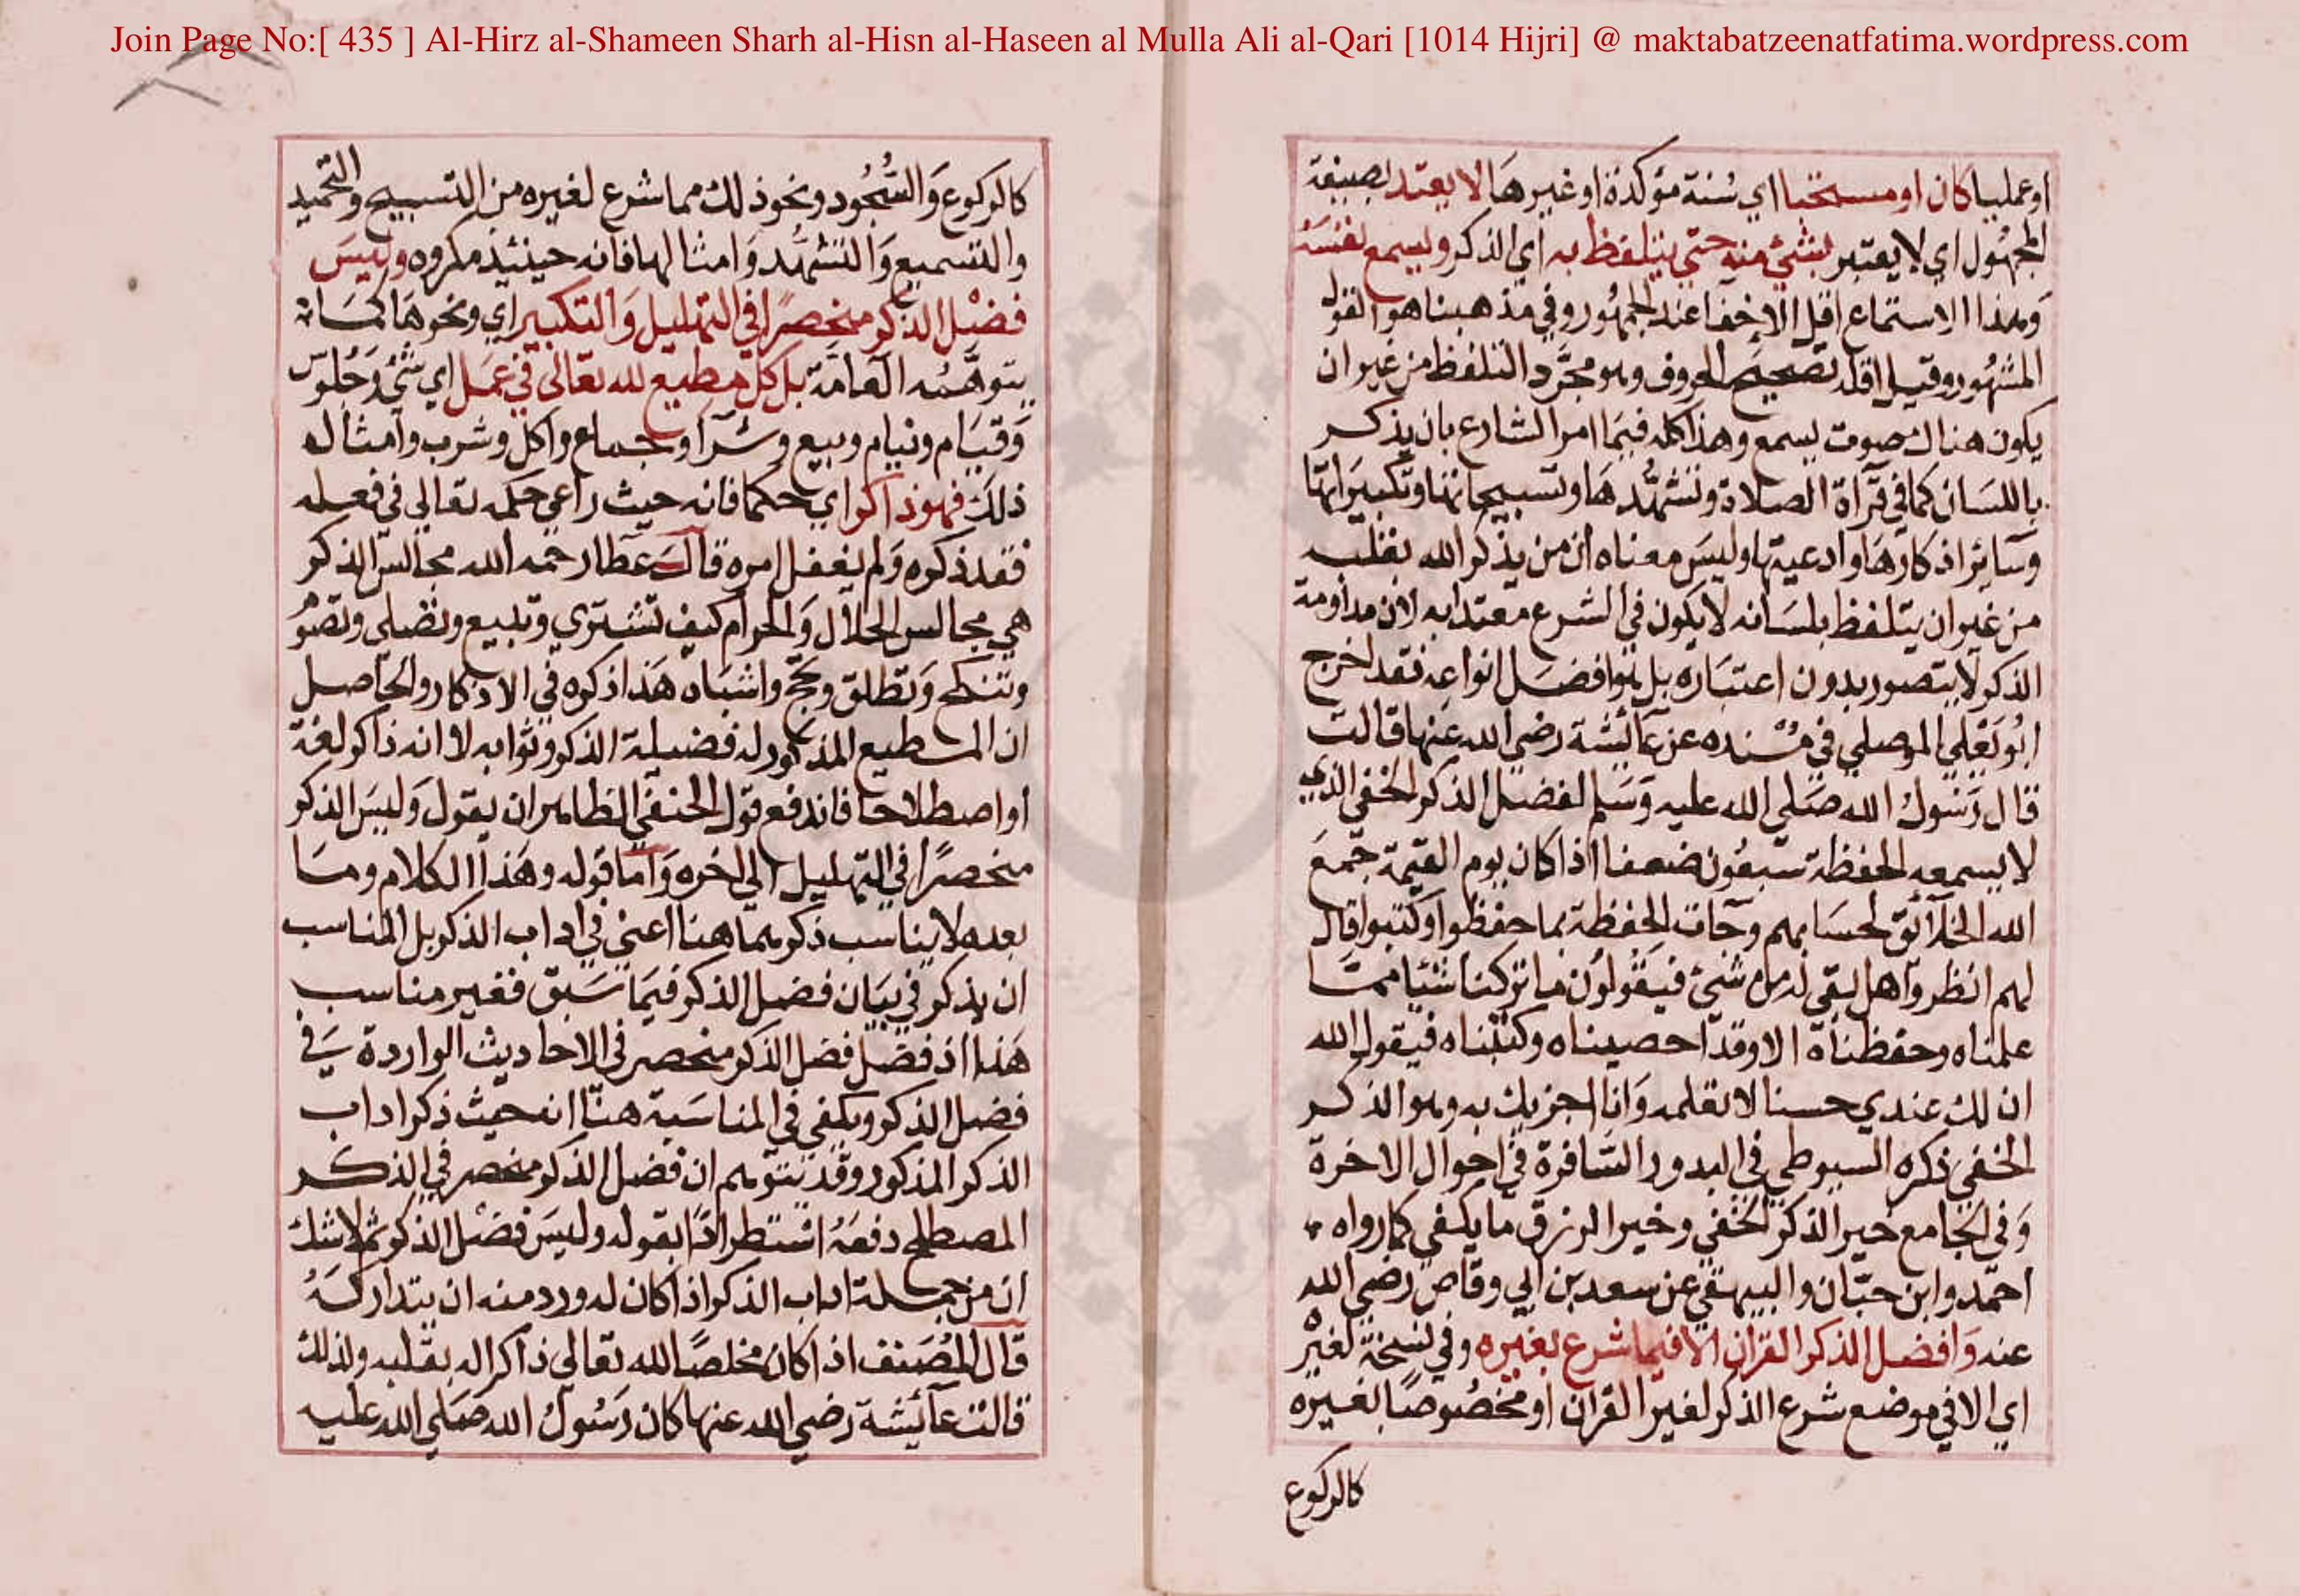 Join Page No:[ 435 ] Al-Hirz al-Shameen Sharh al-Hisn al-Haseen al Mulla Ali al-Qari [1014 Hijri] @ maktabatzeenatfatima.wordpress.com
او عمليا كان او مستحبا اي سُنة مؤكدة او غيرها لا يعتد بصيغة
المجهُول اي لا يعتبر بشئ منه حتي يتلفظ به اي الذكر ويسمع نفسَهُ
وَهذا الاستماع اقل الاخفا عند الجمهُور وفي مذهبنا هو القول
المشهُور وقيل اقله تصحيح الحروف وهو مجرَّد التلفظ من غير ان
يكون هناك صوت يسمع وهذا كله فيمَا امر الشارع بان يذكر
باللسَان كما في قرآة الصلاة وتشهُّدهَا وتسبيحاتها وتكبيراتها
وسَاير اذكارهَا وادعيتها وليسَ معناه ان من يذكر الله بقلبه
من غير ان يتلفظ بلسَانه لا يكون في الشرع معتدا به لان مداومة
الذكر لا يتصور بدون اعتبَاره بل هو افضَل انواعه فقد اخرج
ابُو يَعْلي الموصلي في مُسْنده عن عآئشة رضي الله عنها قالت
قال رَسُول الله صَلي الله عليه وَسَلم لفضل الذكر الخفي الذي
لا يسمعه الحفظة سَبعُون ضعفا اذا كان يوم القيمة جمعَ
الله الخلآئق لحسَابهم وجآت الحفظة بما حفظوا وكتبوا قال
لهم انظروا هل بقي له من شئ فيَقولوُن ما تركنا شئيا ممَّا
علمناه وحفظناه الا وقد احصيناه وكتبناه فيقول الله
ان لك عندي حسنا لا تعلمه وَانا اجزيك به وهو الذكر
الخفي ذكره السيوطي في البدور السَافرة في احوال الاخرة
وَفي الجَامع خير الذكر الخفي وخير الرزق ما يكفي كما رواه
احمد وابن حبّان والبيهقي عن سعد بن ابي وقاص رضي الله
عنه وَافضل الذكر القران الا فيما شرع بغيره وفي نسخة لغيْره
اي الا في موضع شرع الذكر لغير القران او مخصُوصًا بغيره
كالركوع
كالركوع وَالسُّجُود ونحو ذلك مما شرع لغيره من التسبيح والتحميد
والتسميع وَالتشهُّد وَامثالها فانه حينئذ مكروه وليسَ
فضْل الذكر منحصرًا في التهليل وَالتكبير اي ونحوهَا كمَا
يتوهَّمُه العَامَة بل كل مطيع لله تعَالي في عمَل اي شئ وجُلوس
وَقيَام ونيام وبيع وشرآ وجماع واكل وشرب وامثال
ذلك فهو ذاكر اي حكما فانه حيث راعي حكمه تعالي في فعله
فقد ذكره وَلم يغفل امره قالَ عَطا رحمه الله مجالس الذكر
هي مجالس الحلال وَالحرام كيف تشتري وتبيع وتصَلي وتصوُم
وتنكح وَتطلق وتحجّ واشبَاه هَذا ذكره في الاذكار والحَاصل
ان المطيع المذكور له فضيلة الذكر وثوابه لا انه ذاكر لغة
او اصطلاحا فاندفع قول الحنفي الظاهر ان يقول وَليسَ الذكر
منحصرًا في التهليل الي اخره وَامّا قوله وهَذا الكلام ومَا
بعده لا يناسب ذكرهما هنا اعني في اداب الذكر بل المناسب
ان يذكر في بيَان فضل الذكر فيمَا سَبق فغير مناسب
هَذا اذ فضل فضل الذكر منحصر في الاحاديث الواردة في
فضل الذكر ويكفي في المناسَبة هنّا انه حيث ذكر اداب
الذكر المذكور وقد يتوهم ان فضل الذكر منحصر في الذكر
المصطلح دفعَهُ استطرادًا بقوله وليسَ فضْل الذكر ثم لا شك
ان من جملة اداب الذكر اذا كان له ورد منه ان يتداركَهُ
قال المُصَنف اذا كان مخلصًا لله تعَالي ذاكرا له بقلبه ولذلك
قالت عآئشة رضي الله عنها كان رَسُول الله صَلي الله عليه